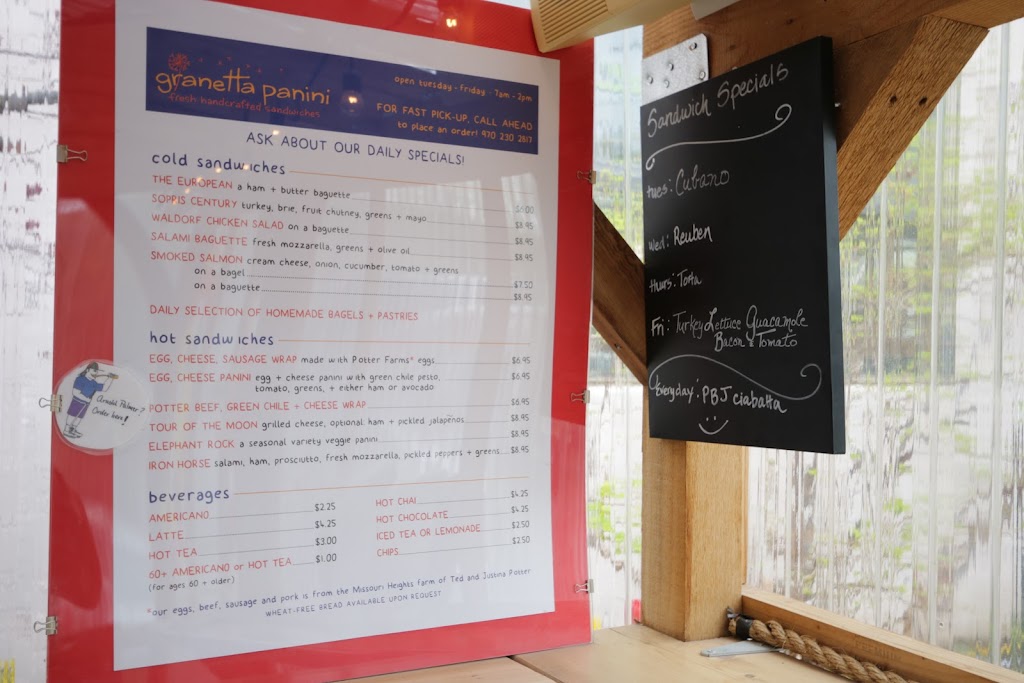 granetta panini
fresh handcrafted sandwiches
open tuesday - friday - 7am - 2pm
FOR FAST PICK-UP, CALL AHEAD
to place an order! 970 230 2817
ASK ABOUT OUR DAILY SPECIALS!
cold sandwiches
THE EUROPEAN a ham + butter baguette $6.00
SOPRIS CENTURY turkey, brie, fruit chutney, greens + mayo $8.95
WALDORF CHICKEN SALAD on a baguette $8.95
SALAMI BAGUETTE fresh mozzarella, greens + olive oil $8.95
SMOKED SALMON cream cheese, onion, cucumber, tomato + greens
on a bagel $7.50
on a baguette $8.95
DAILY SELECTION OF HOMEMADE BAGELS + PASTRIES
hot sandwiches
EGG, CHEESE, SAUSAGE WRAP made with Potter Farms* eggs $6.95
EGG, CHEESE PANINI egg + cheese panini with green chile pesto, $6.95
tomato, greens, + either ham or avocado
POTTER BEEF, GREEN CHILE + CHEESE WRAP $6.95
TOUR OF THE MOON grilled cheese, optional ham + pickled jalapeños $8.95
ELEPHANT ROCK a seasonal variety veggie panini $8.95
IRON HORSE salami, ham, prosciutto, fresh mozzarella, pickled peppers + greens $8.95
Arnold Palmer?
Order here!
beverages
AMERICANO $2.25
LATTE $4.25
HOT TEA $3.00
60+ AMERICANO or HOT TEA $1.00
(for ages 60 + older)
HOT CHAI $4.25
HOT CHOCOLATE $4.25
ICED TEA OR LEMONADE $2.50
CHIPS $2.50
*our eggs, beef, sausage and pork is from the Missouri Heights farm of Ted and Justina Potter
WHEAT-FREE BREAD AVAILABLE UPON REQUEST
Sandwich Specials
tues: Cubano
Wed: Reuben
thurs: Torta
Fri: Turkey Lettuce Guacamole
Bacon & Tomato
Everyday: PBJ ciabatta